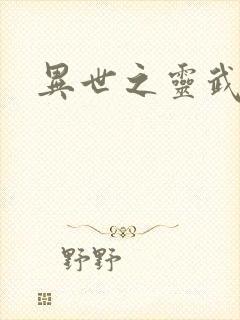 異世之靈武
野野